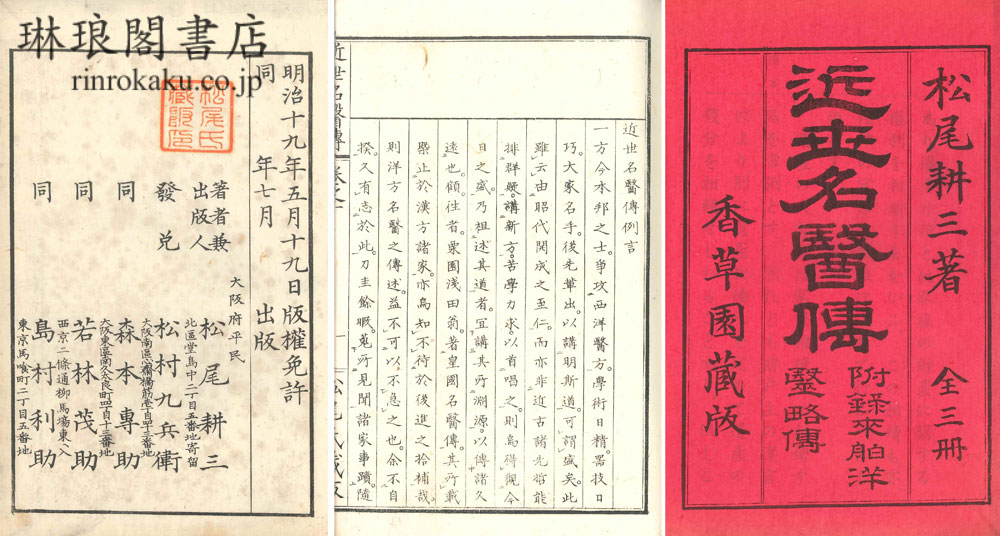 琳琅閣書店
rinrokaku.co.jp
松尾耕三著　全三冊
近世名醫傳
附錄來舶洋
醫略傳
香草園藏版
近世名醫傳例言
一方今本邦之士。爭攻西洋醫方。學術日精。器技日
巧。大家名手。後先輩出。以講明斯道。可謂盛矣。此
雖云由昭代開成之至仁。而亦非近古諸先哲能
排群疑。講新方。苦學力求。以首唱之。則烏得觀今
日之盛。乃祖述其道者。宜講其所淵源。以傳諸久
遠也。顧往者。栗園淺田翁。著皇國名醫傳。其所載
槩止於漢方諸家。亦烏知不待於後進之拾補哉
則洋方名醫之傳述。益不可以不急之也。余不自
揆。久有志於此。刀圭餘暇。蒐所見聞諸家事蹟。隨
近世名醫傳
松尾氏藏版
明治十九年五月十九日版權免許
同　年七月　出版
松尾氏藏版印
大阪府平民
著者兼出版人　松尾耕三
北區堂島中二丁目五番地寄留
發兌　松村九兵衛
大阪南區心齋橋筋壱丁目四十三番地
同　森本專助
大阪東區南久太良町四丁目四十三番地
同　若林茂助
西京二條通柳馬場東ヘ入
同　島村利助
東京馬喰町二丁目五番地